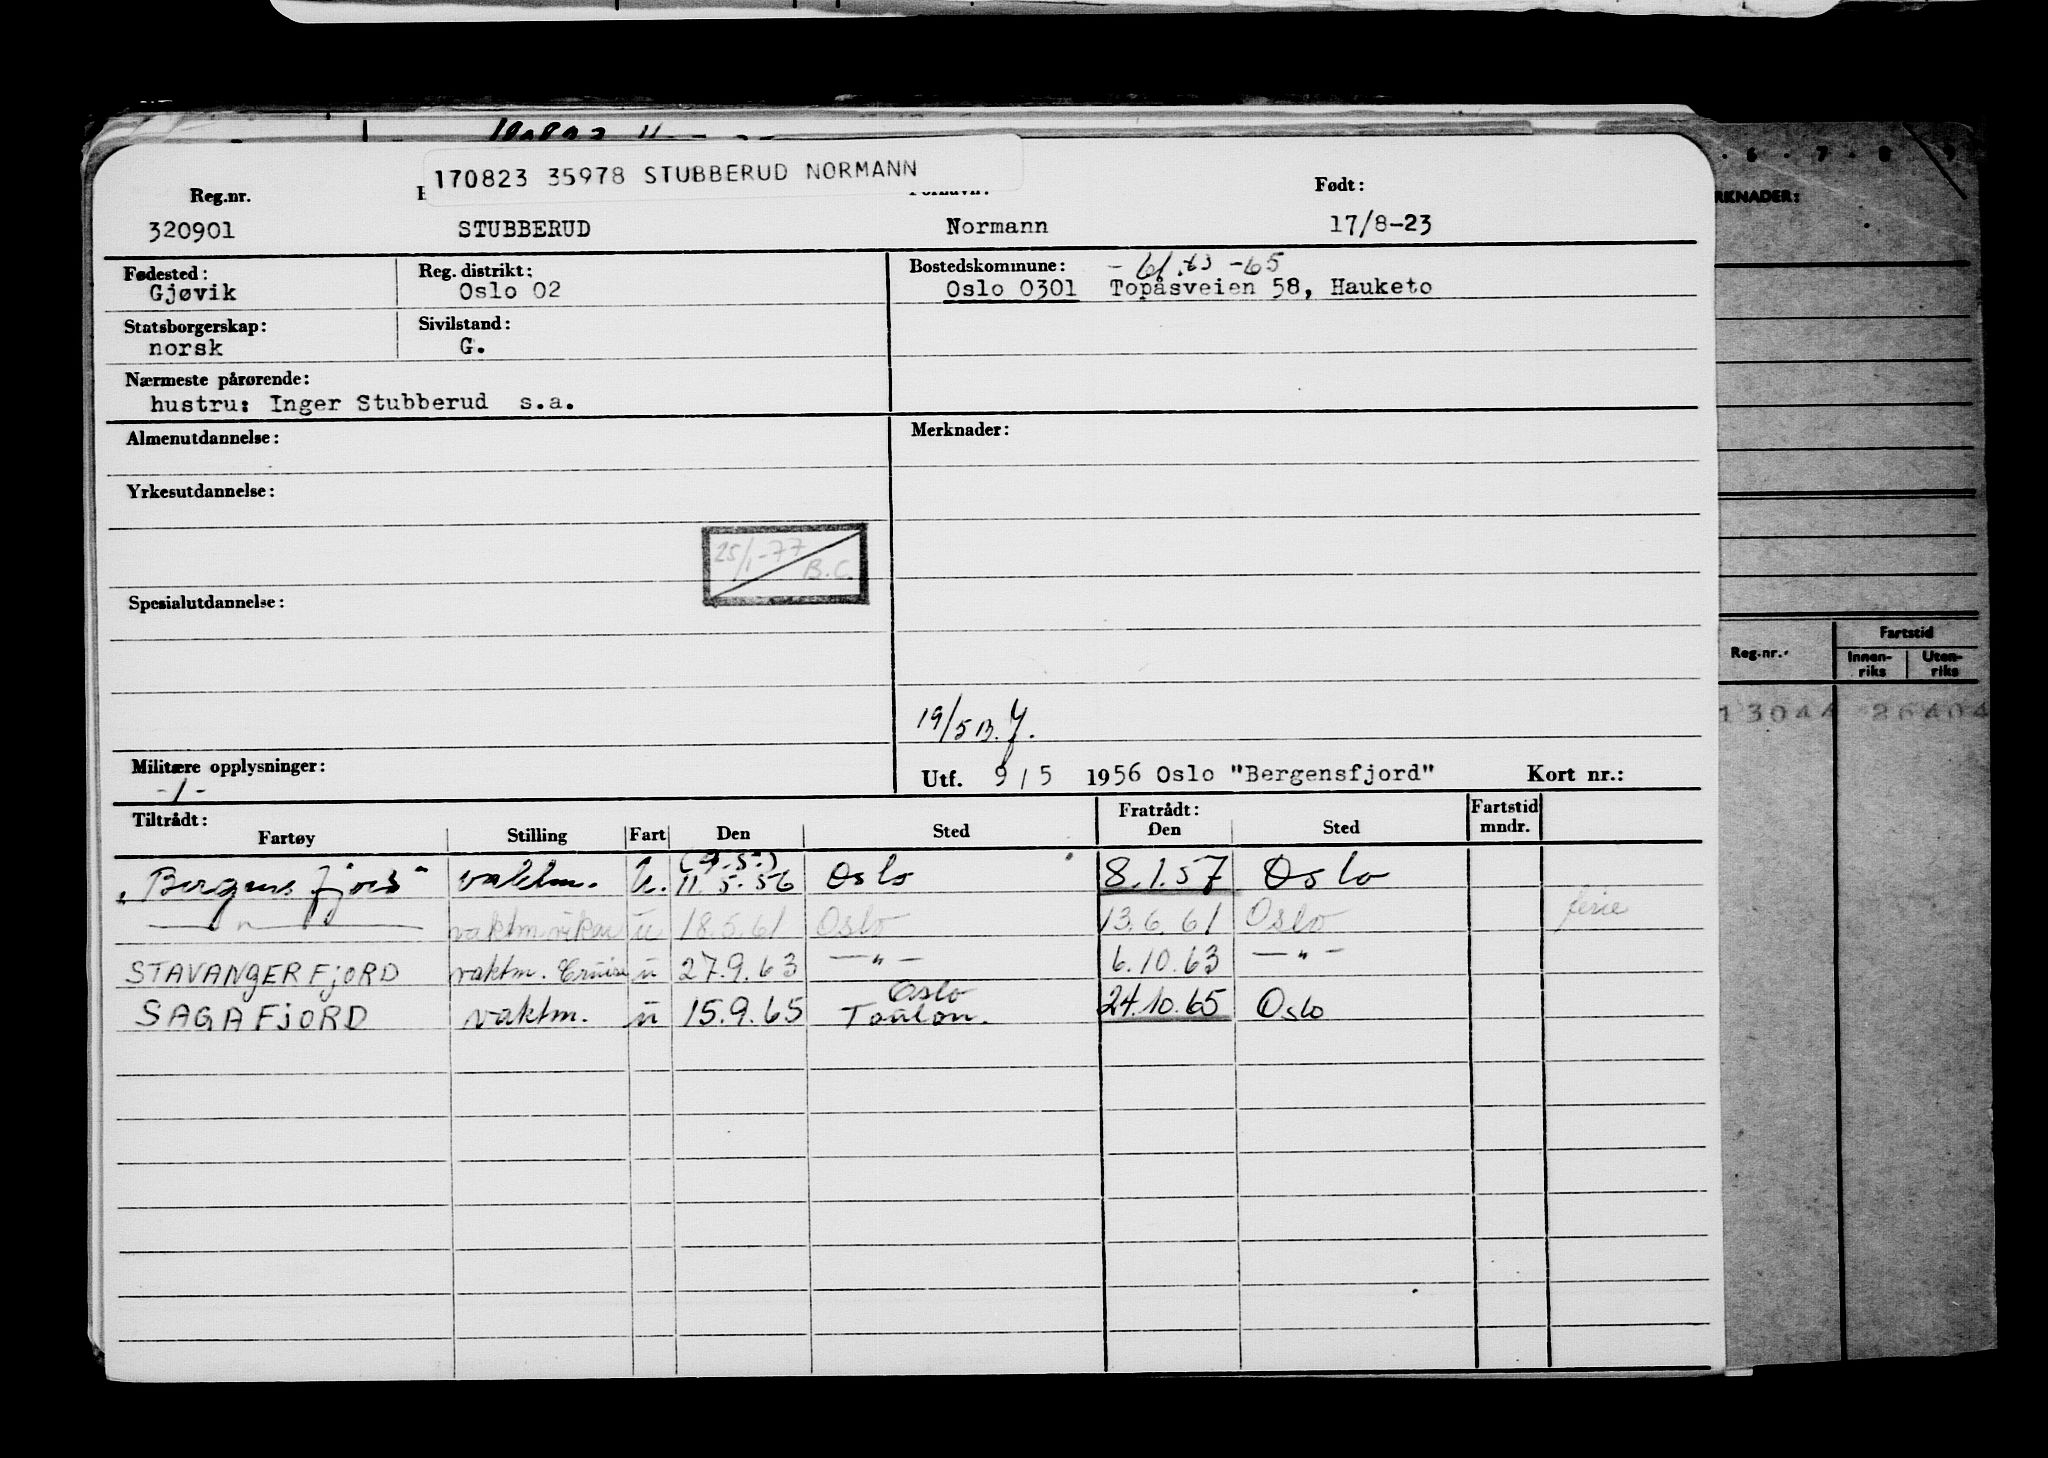 170823 35978 STUBBERUD NORMANN
Reg.nr. Født:
320901 STUBBERUD Normann 17/8-23
Fødested: Reg. distrikt: Bostedskommune: - 61.63 -65
Gjøvik Oslo 02 Oslo 0301 Topåsveien 58, Hauketo
Statsborgerskap: Sivilstand:
norsk G.
Nærmeste pårørende:
hustru: Inger Stubberud s.a.
Almenutdannelse: Merknader:
Yrkesutdannelse:
25/1-77
B.C.
Spesialutdannelse:
19/5
Militære opplysninger: Utf. 9/5 1956 Oslo "Bergensfjord" Kort nr.:
-/-
Tiltrådt: Fratrådt: Fartstid
Fartøy Stilling Fart Den Sted Den Sted mndr.
"Bergensfjord" vaktm. U. (9.5.) 11.5.56 Oslo 8.1.57 Oslo
—"— vaktm.vikar u 18.5.61 Oslo 13.6.61 Oslo ferie
STAVANGERFJORD vaktm. Cruise u 27.9.63 —"— 6.10.63 —"—
SAGAFJORD vaktm. u 15.9.65 Oslo Toulon. 24.10.65 Oslo
6 · 7 · 8 · 9
RKNADER:
Reg.nr. Fartstid
Innen-riks Uten-riks
13044 26404